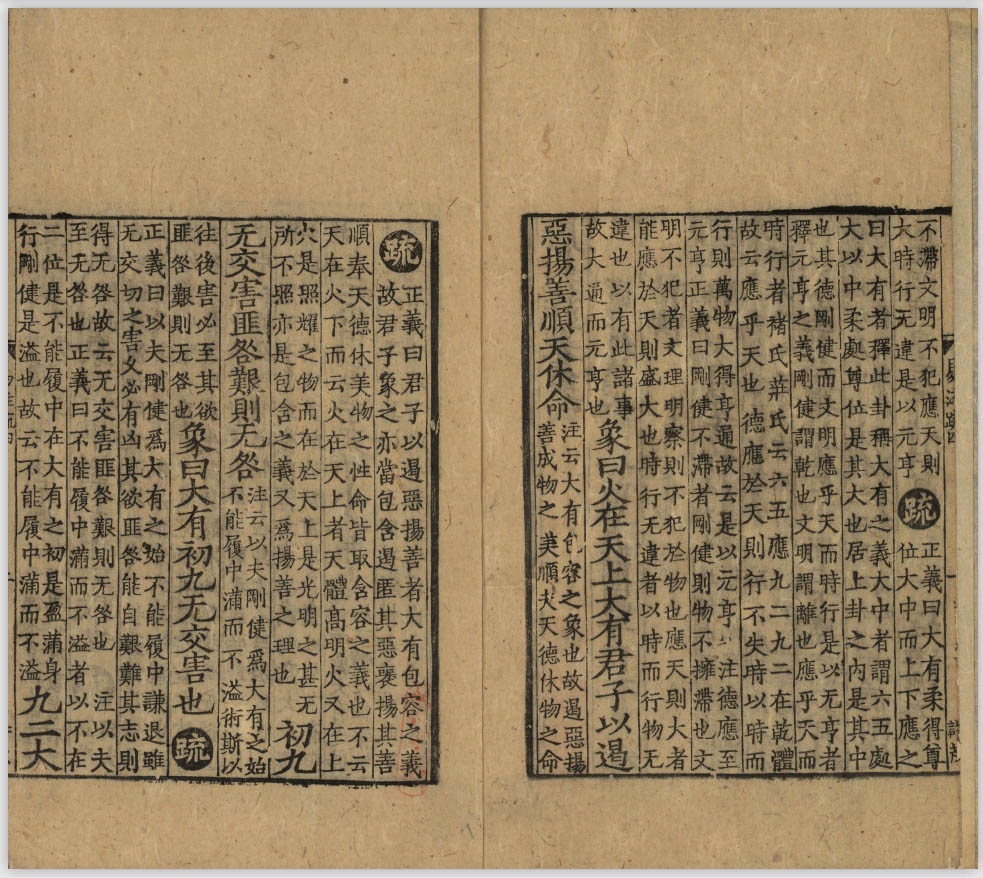 不滯文明不犯應天則
大時行无違是以元亨
疏
正義曰大有柔得尊
位大中而上下應之
曰大有者釋此卦稱大有之義大中者謂六五處
大以中柔處尊位是其大也居上卦之內是其中
也其德剛健而文明應乎天而時行是以无亨者
釋元亨之義剛健謂乾也文明謂離也應乎天而
時行者禇氏莊氏云六五應九二九二在乾體
故云應乎天也 德應於天則行不失時以時而
行則萬物大得亨通故云是以元亨 注德應至
元亨正義曰剛健不滯者剛健則物不擁滯也文
明不犯者文理明察則不犯於物也應天則大者
能應於天則盛大也時行无違者以時而行物无
違也以有此諸事
故大通而元亨也
象曰火在天上大有君子以遏
惡揚善順天休命
注云大有包容之象也故遏惡揚
善成物之美順夫天德休物之命
疏
正義曰君子以遏惡揚善者大有包容之義
故君子象之亦當包含遏匿其惡褒揚其善
順奉天德休美物之性命皆取含容之義也不云
天在火下而云火在天上者天體高明火又在上
火是照耀之物而在於天上是光明之甚无
所不照亦是包含之義又爲揚善之理也
初九
无交害匪咎艱則无咎
注云以夫剛健爲大有之始
不能履中滿而不溢術斯以
往後害必至其欲
匪咎艱則无咎也
象曰大有初九无交害也
疏
正義曰以夫剛健爲大有之始不能履中謙退雖
无交切之害乆必有凶其欲匪咎能自艱難其志則
得无咎故云无交害匪咎艱則无咎也 注以夫
至无咎也正義曰不能履中滿而不溢者以不在
二位是不能履中在大有之初是盈滿身
行剛健是溢也故云不能履中滿而不溢
九二大